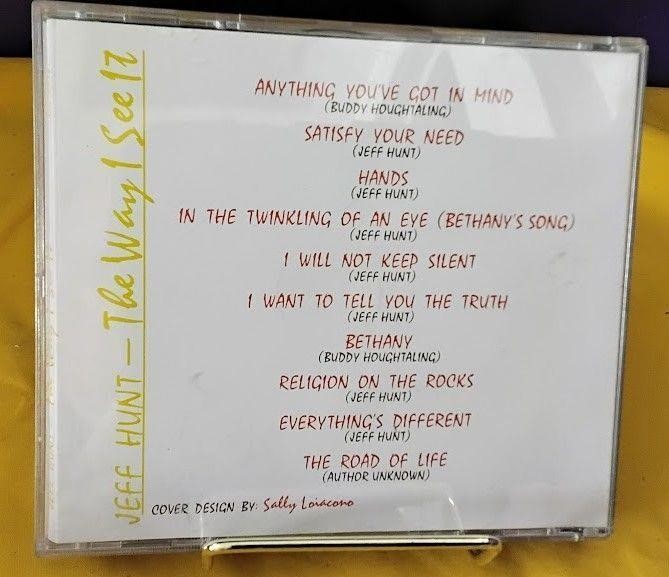 JEFF HUNT – The Way I See It
ANYTHING YOU'VE GOT IN MIND
(BUDDY HOUGHTALING)
SATISFY YOUR NEED
(JEFF HUNT)
HANDS
(JEFF HUNT)
IN THE TWINKLING OF AN EYE (BETHANY'S SONG)
(JEFF HUNT)
I WILL NOT KEEP SILENT
(JEFF HUNT)
I WANT TO TELL YOU THE TRUTH
(JEFF HUNT)
BETHANY
(BUDDY HOUGHTALING)
RELIGION ON THE ROCKS
(JEFF HUNT)
EVERYTHING'S DIFFERENT
(JEFF HUNT)
THE ROAD OF LIFE
(AUTHOR UNKNOWN)
COVER DESIGN BY: Sally Loiacono